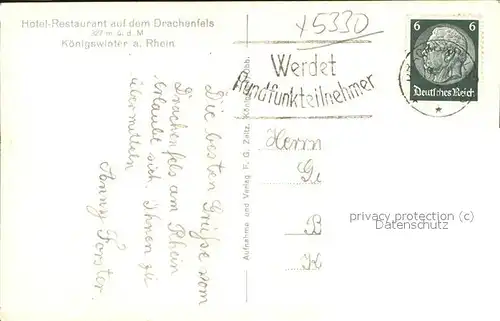 Hotel-Restaurant auf dem Drachenfels
327 m ü. d. M
Königswinter a. Rhein
Die besten Grüße vom
Drachenfels am Rhein
erlaubt sich Ihnen zu
übermitteln
Anny Forster.
Aufnahme und Verlag F. G. Zeitz, Königs
x5330
Werdet
Rundfunkteilnehmer
6 6
Deutsches Reich
Herrn
G
B
K
privacy protection (c)
Datenschutz